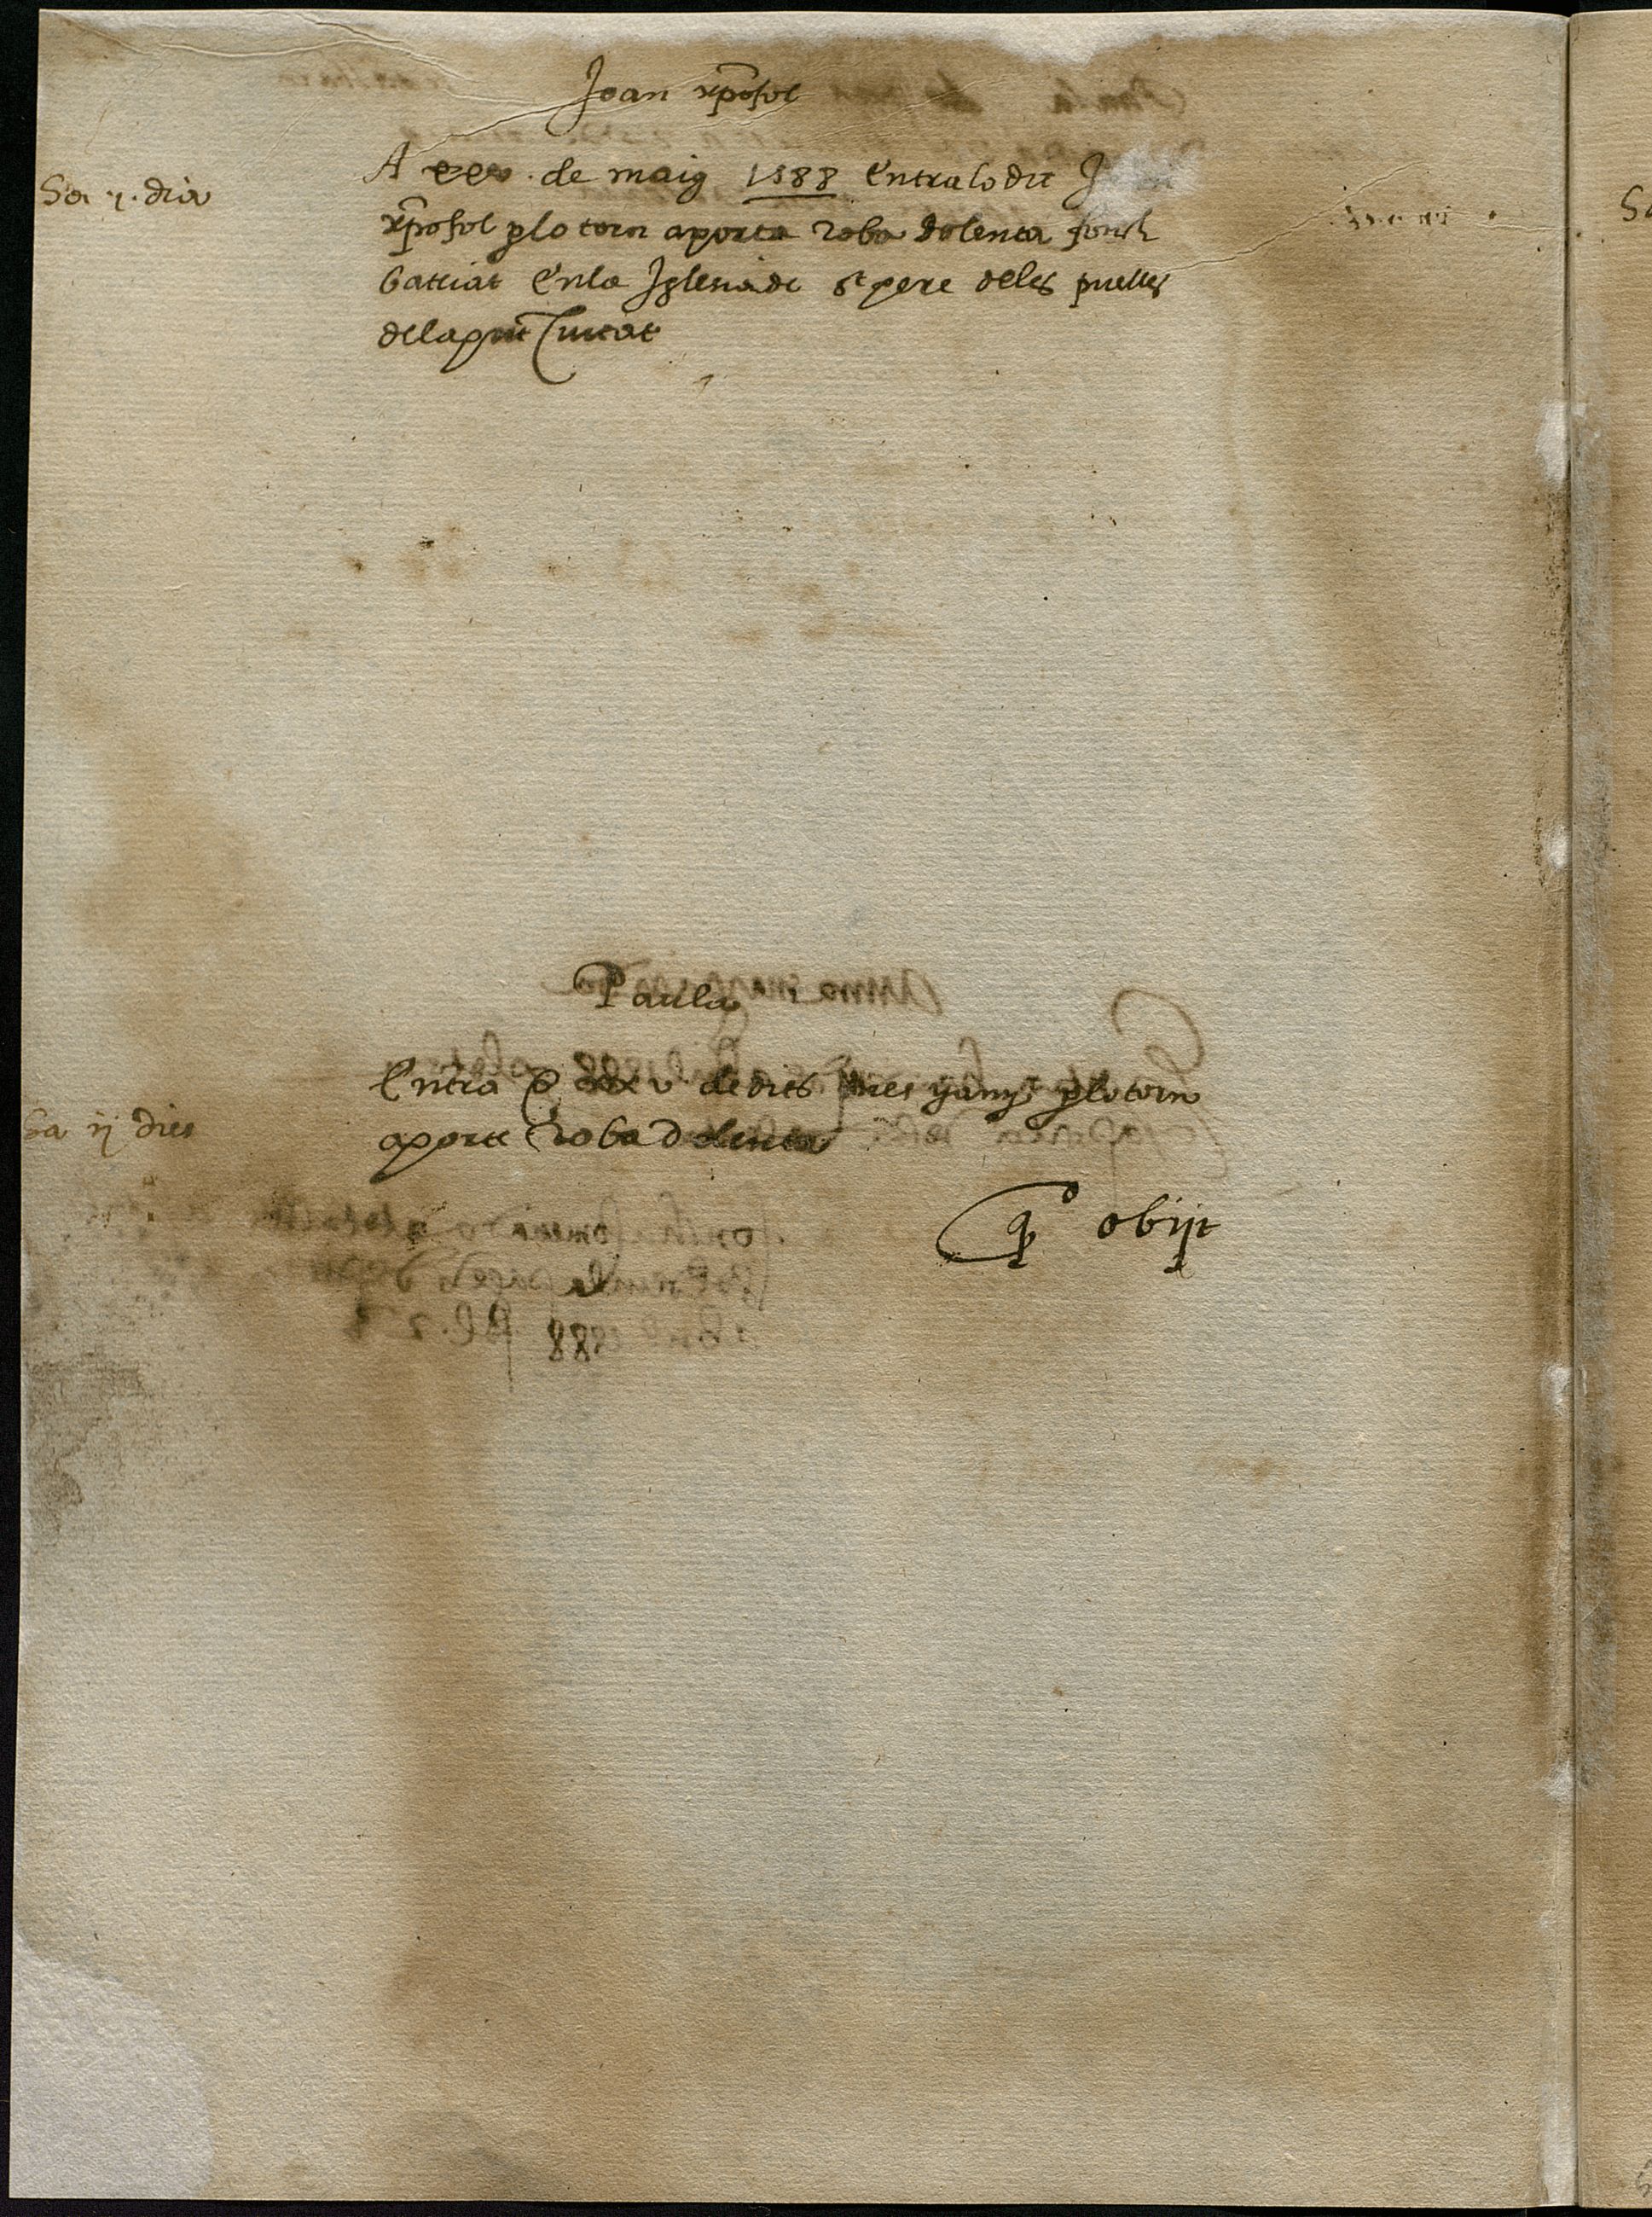 Joan xpõfol
Sa j. dia
A xxv. de maig 1588 Entra lo dit J
xpõfol p lo torn aporta roba dolenta fonch
batiat En la Iglesia de St pere deles puelles
dela pnt Ciutat
Paula
Entra a xxv de dits mes y any p lo torn
Sa ij dies
aporta roba dolenta
obijt